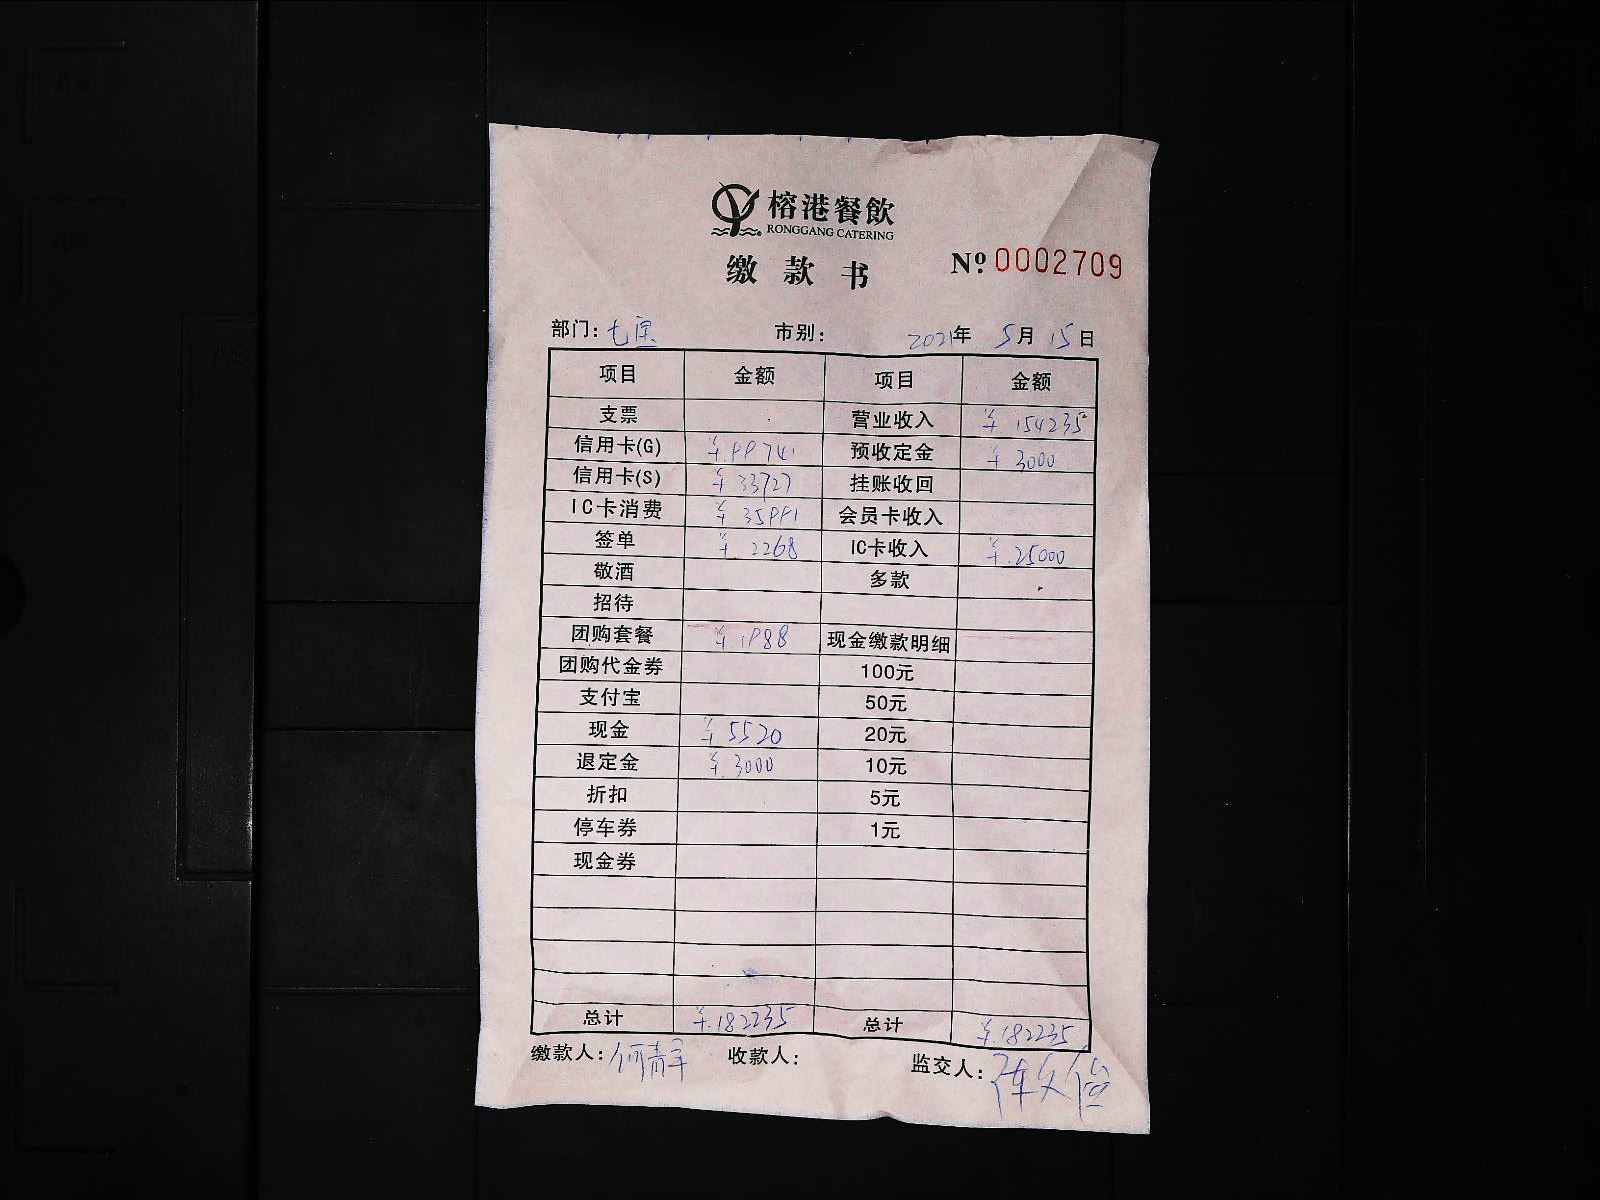 榕港餐飲
RONGGANG CATERING
缴款书 № 0002709
部门：七宝 市别： 2021年 5月 15日
项目 金额 项目 金额
支票 营业收入 ¥ 154235
信用卡(G) ¥.99741 预收定金 ¥ 3000
信用卡(S) ¥ 33727 挂账收回
IC卡消费 ¥ 35991 会员卡收入
签单 ¥ 2268 IC卡收入 ¥.25000
敬酒 多款
招待
团购套餐 ¥.1988 现金缴款明细
团购代金券 100元
支付宝 50元
现金 ¥ 5520 20元
退定金 ¥.3000 10元
折扣 5元
停车券 1元
现金券
总计 ¥.182235 总计 ¥.182235
缴款人： 收款人： 监交人：